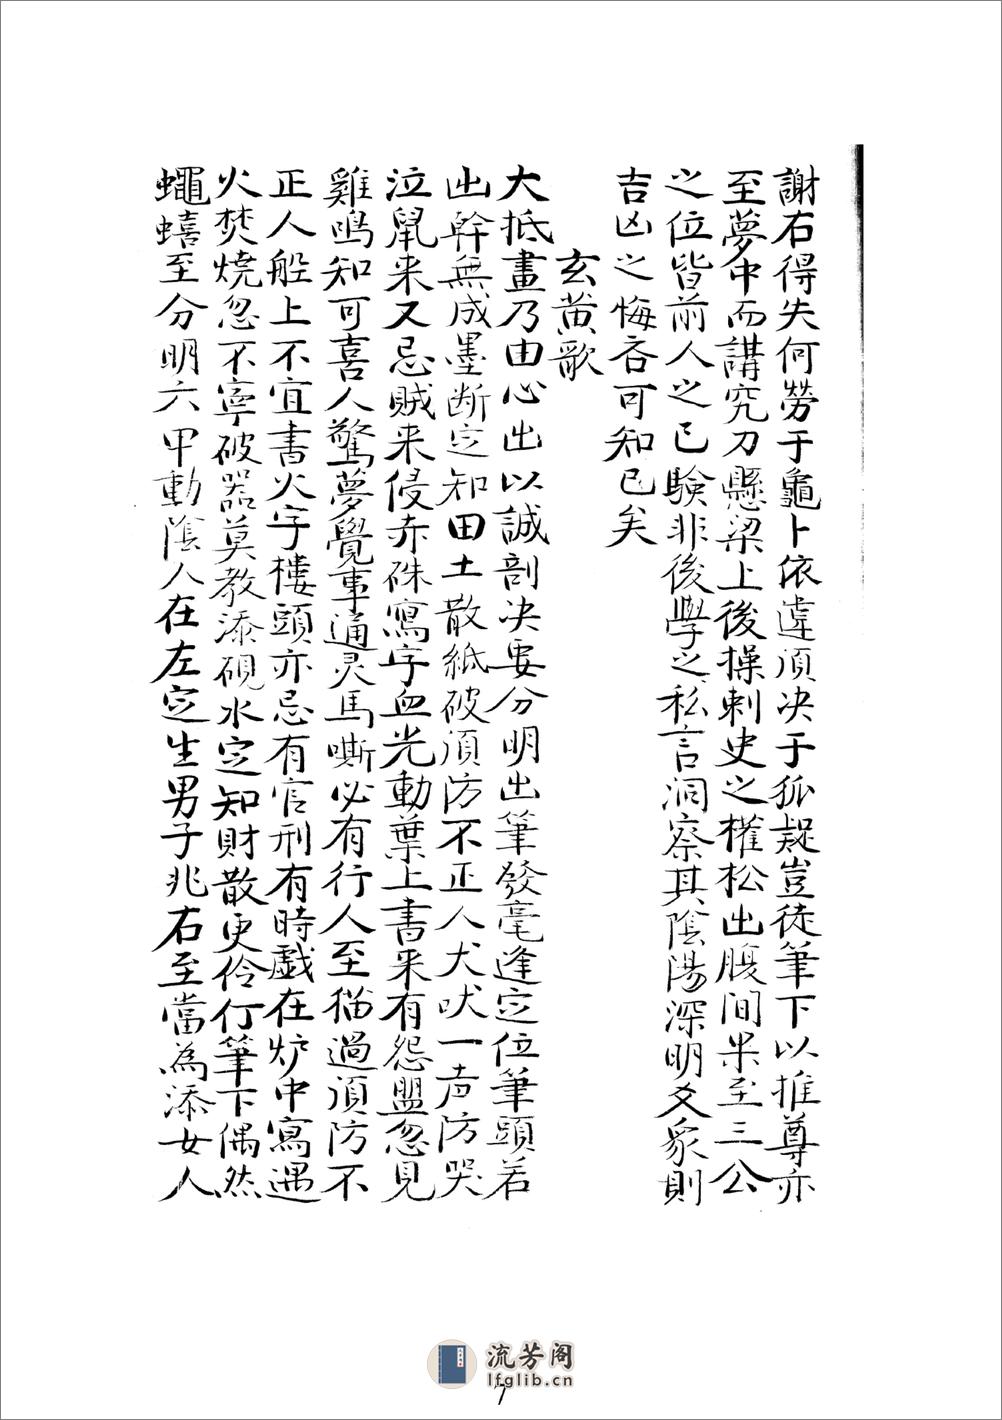 謝右得失何勞于龜卜依違湏决于狐疑豈徒筆下以推尊亦
至夢中而講究刀懸梁上後操刺史之權松出腹间果至三公
之位皆前人之已驗非後學之私言洞察其陰陽深明爻象則
吉凶之悔吝可知已矣
玄黄歌
大抵畫乃由心出以誠剖决要分明出筆發毫逢定位筆頭若
出幹無成墨断定知田土散紙破湏防不正人犬吠一声防哭
泣鼠来又忌贼来侵赤硃寫字血光動葉上書来有怨盟忽見
雞鳴知可喜人驚夢覺事通灵馬嘶必有行人至猫過湏防不
正人般上不宜書火字樓頭亦忌有官刑有時戲在炉中寫遇
火焚燒忽不寧破器莫教添硯水定知財散更伶仃筆下偶然
蠅蟢至分明六甲動陰人在左定生男子兆右至當為添女人
流芳阁
lfglib.cn
7